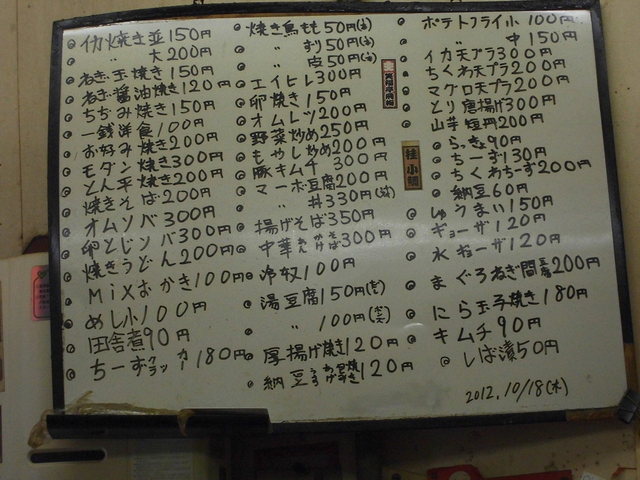 イカ焼き並150円
〃 大200円
ねぎ玉焼き150円
ねぎ醤油焼き120円
ちぢみ焼き150円
一銭洋食100円
お好み焼き200円
モダン焼き300円
とん平焼き200円
焼きそば200円
オムソバ300円
卵とじソバ300円
焼きうどん200円
MiXおかき100円
めし小100円
田舎煮90円
ちーずクラッカー180円
焼き鳥もも50円
〃 ずり50円
〃 皮50円
エイヒレ300円
卵焼き150円
オムレツ200円
野菜炒め250円
もやし炒め200円
豚キムチ300円
マーボ豆腐200円
〃 丼330円
揚げそば350円
中華あんかけそば300円
冷奴100円
湯豆腐150円
〃 100円
厚揚げ焼き120円
納豆うすあげ包焼き120円
ポテトフライ小100円
〃 中150円
イカ天プラ300円
ちくわ天プラ200円
マグロ天プラ200円
とり唐揚げ300円
山芋短冊200円
らっきょ90円
ちーず130円
ちくわちーず200円
納豆60円
しゅうまい150円
ギョーザ120円
水ギョーザ120円
まぐろねぎ間200円
にら玉子焼き180円
キムチ90円
しば漬50円
桂小鯛
2012.10/18(木)